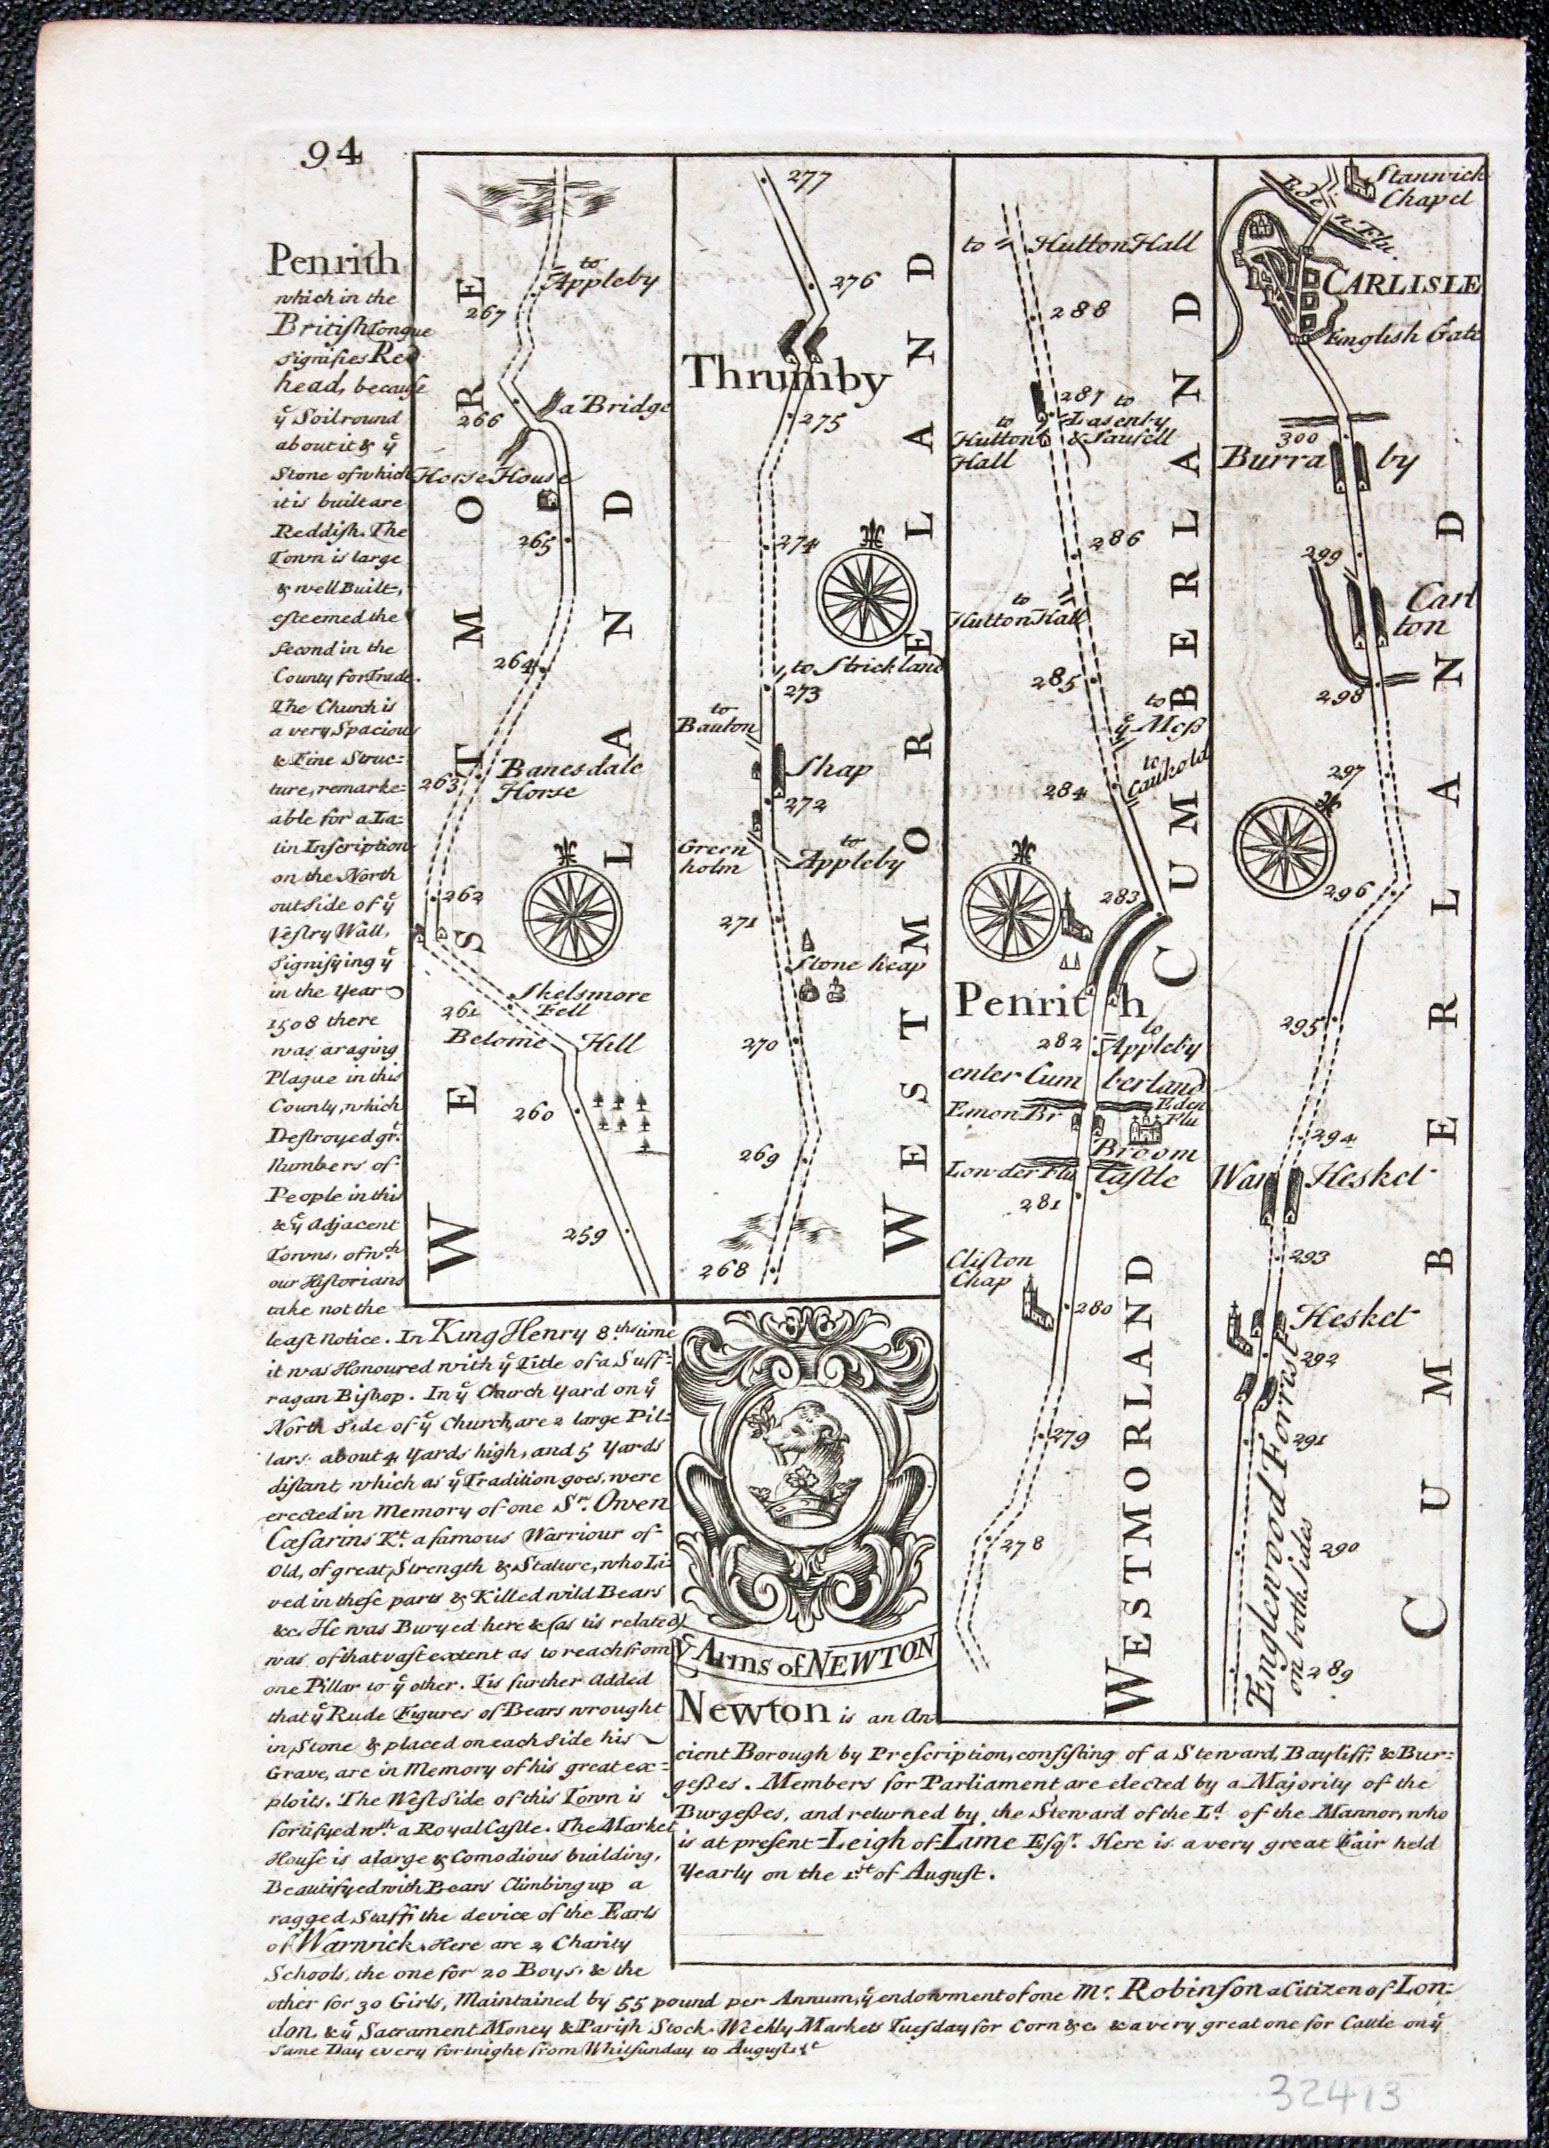 94
Penrith
which in the
British tongue
signifies Red
head, because
yͤ Soil round
about it & yͤ
Stone of which
it is built are
Reddish. The
Town is large
& well Built,
esteemed the
Second in the
County for Trade.
The Church is
a very Spacious
& Fine Struc=
ture, remarke=
able for a La=
tin Inscription
on the North
outside of yͤ
Vestry Wall,
signifying yͭ
in the Year
1508 there
was a raging
Plague in this
County, which
Destroyed gr.ͭ
Numbers of
People in this
& yͤ Adjacent
Towns, of wᶜʰ
our Historians
take not the
least Notice. In King Henry 8.ᵗʰˢ time
it was Honoured with yͤ Title of a Suff=
ragan Bishop. In yͤ Church Yard on yͤ
North side of yͤ Church, are 2 large Pil=
lars about 4 Yards high, and 5 Yards
distant which as yͤ Tradition goes, were
erected in Memory of one Sʳ. Owen
Cæsarins Kᵗ. a famous Warriour of
Old, of great Strength & Stature, who Li=
ved in these parts & Killed wild Bears
&c. He was Buryed here & (as tis related)
was of that vast extent as to reach from
one Pillar to yͤ other. Tis further Added
that yͤ Rude Figures of Bears wrought
in Stone & placed on each side his
Grave, are in Memory of his great ex=
ploits. The West Side of this Town is
fortifyed wᵗʰ a Royal Castle. The Market
House is a large & Comodious building,
Beautifyed with Bears Climbing up a
ragged Staff, the device of the Earls
of Warwick. Here are 2 Charity
Schools, the one for 20 Boys, & the
other for 30 Girls, Maintained by 55 pound per Annum, yͤ endowment of one Mʳ. Robinson a Citizen of Lon=
don, & yͤ Sacrament Money & Parish Stock. Weekly Markets Tuesday for Corn &c. & a very great one for Cattle on yͤ
same Day every fortnight from Whitsunday to August 1ˢᵗ
WESTMORE
LAND
to
Appleby
267
266
a Bridge
Horse House
265
264
263
Banesdale
Horse
262
Skelsmore
Fell
261
Belome Hill
260
259
277
276
Thrumby
275
274
to Strickland
273
to
Bauton
Shap
272
Green
holm
to
Appleby
271
Stone heap
270
269
268
WESTMORELAND
yͤ Arms of NEWTON
to Hutton Hall
288
287
to
Lasenby
& Sausell
to
Hutton
Hall
286
to
Hutton Hall
285
to
yͤ Mess
to
Caukold
284
283
Penrith
to
Appleby
282
enter Cumberland
Emon Br
Eden
Flu
Broom
Castle
Lowder Flu
281
Clifton
Chap
280
279
278
CUMBERLAND
WESTMORLAND
Stanwick
Chapel
Eden Flu.
CARLISLE
English Gate
300
Burraby
299
Carl
ton
298
297
296
295
294
War Hesket
293
Hesket
292
291
290
289
Englewood Forrist
on both sides
CUMBERLAND
Newton is an An=
cient Borough by Prescription, consisting of a Steward, Bayliff, & Bur=
gesses. Members for Parliament are elected by a Majority of the
Burgesses, and returned by the Steward of the Lᵈ. of the Mannor, who
is at present Leigh of Lime Esqʳ. Here is a very great Fair held
Yearly on the 1ˢᵗ of August.
32413